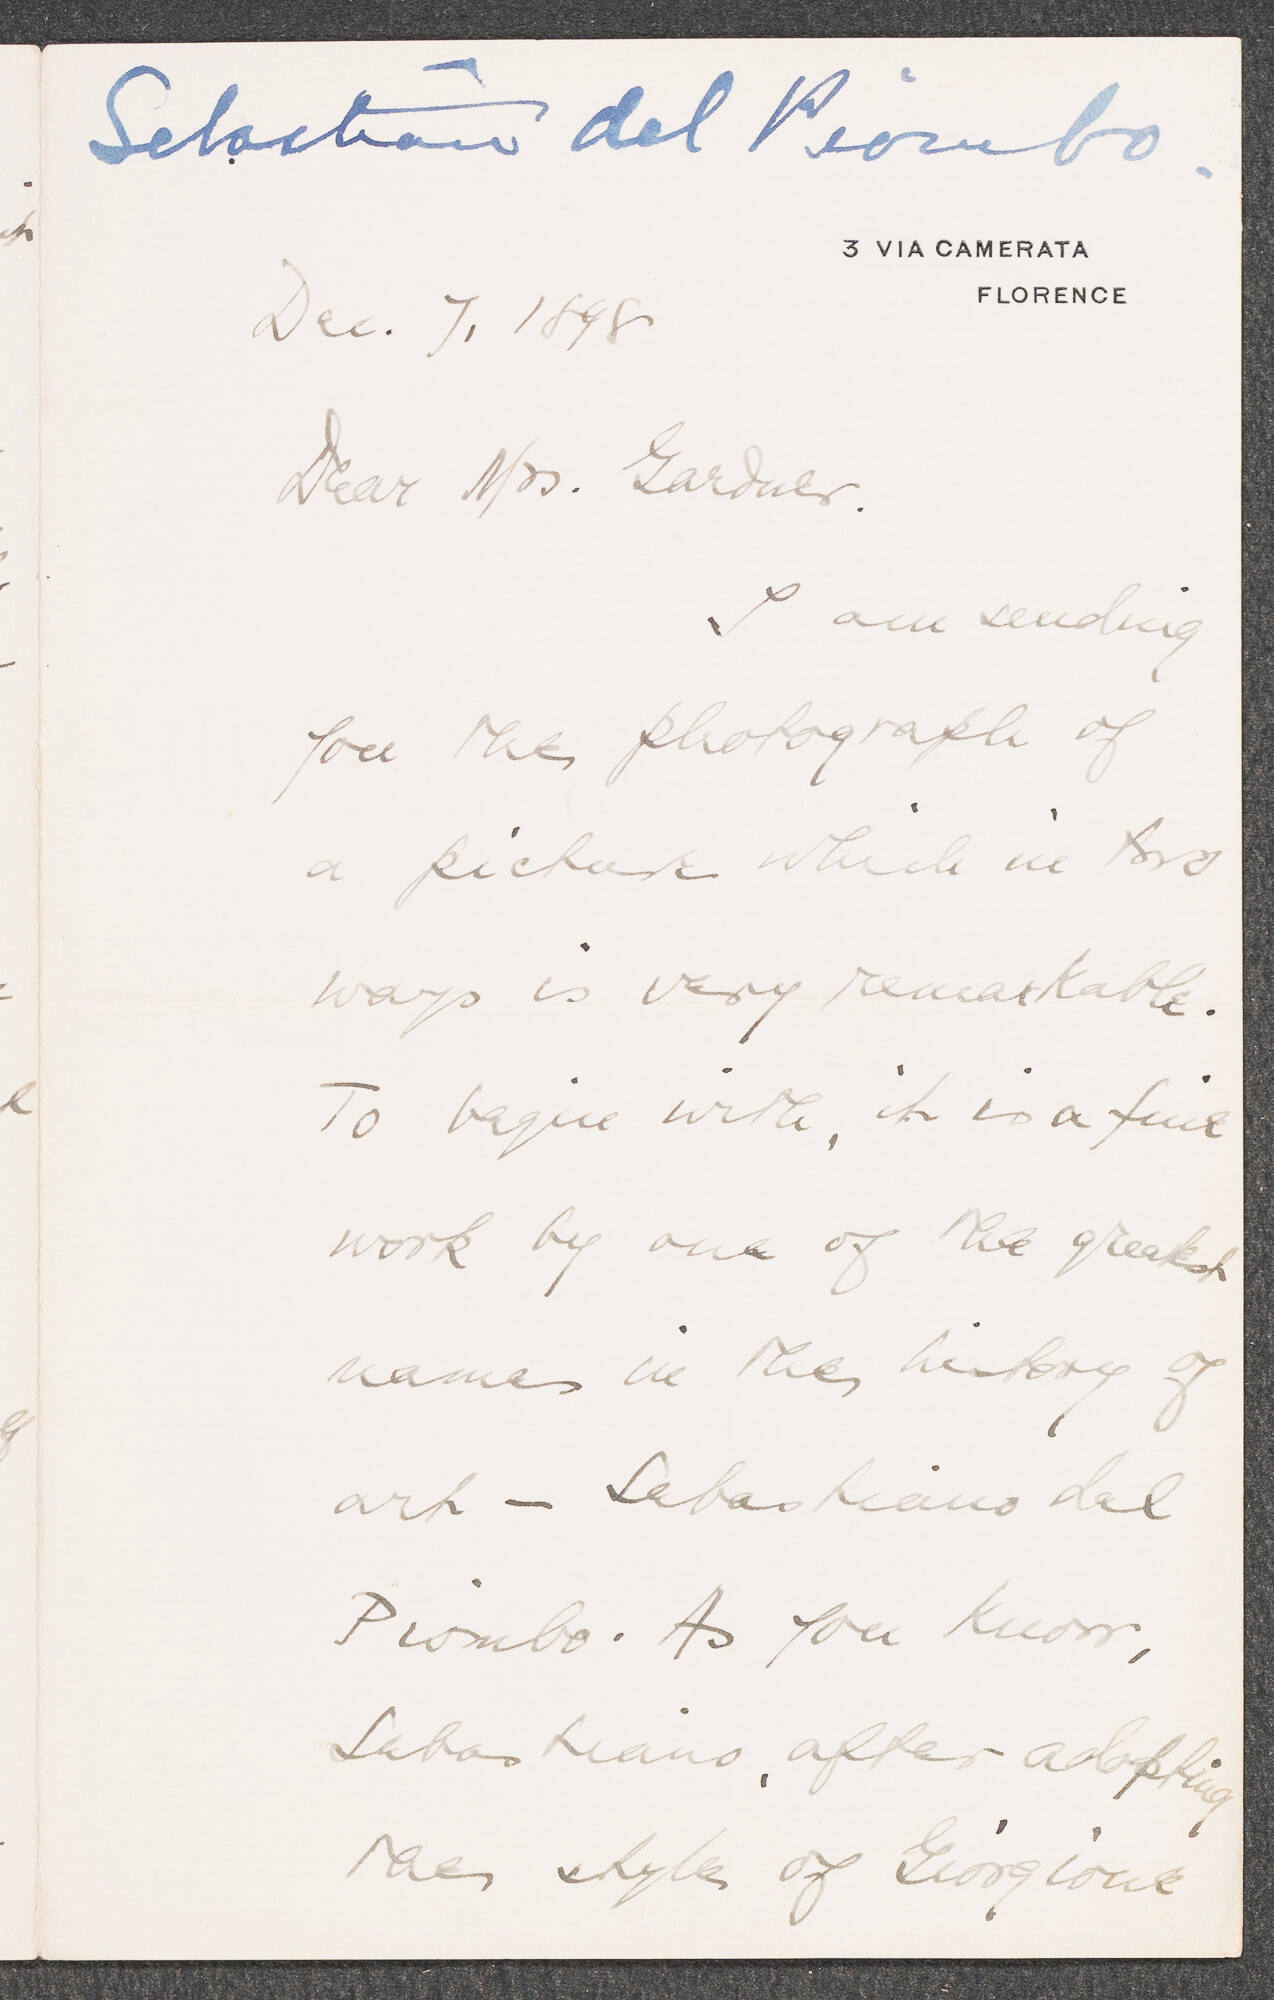 Sebastian del Piombo.
3 VIA CAMERATA
FLORENCE
Dec. 7, 1898
Dear Mrs. Gardner.
I am sending
you the photograph of
a picture which in two
ways is very remarkable.
To begin with, it is a fine
work by one of the greatest
names in the history of
art — Sebastiano del
Piombo. As you know,
Sebastiano, after adopting
the style of Giorgione